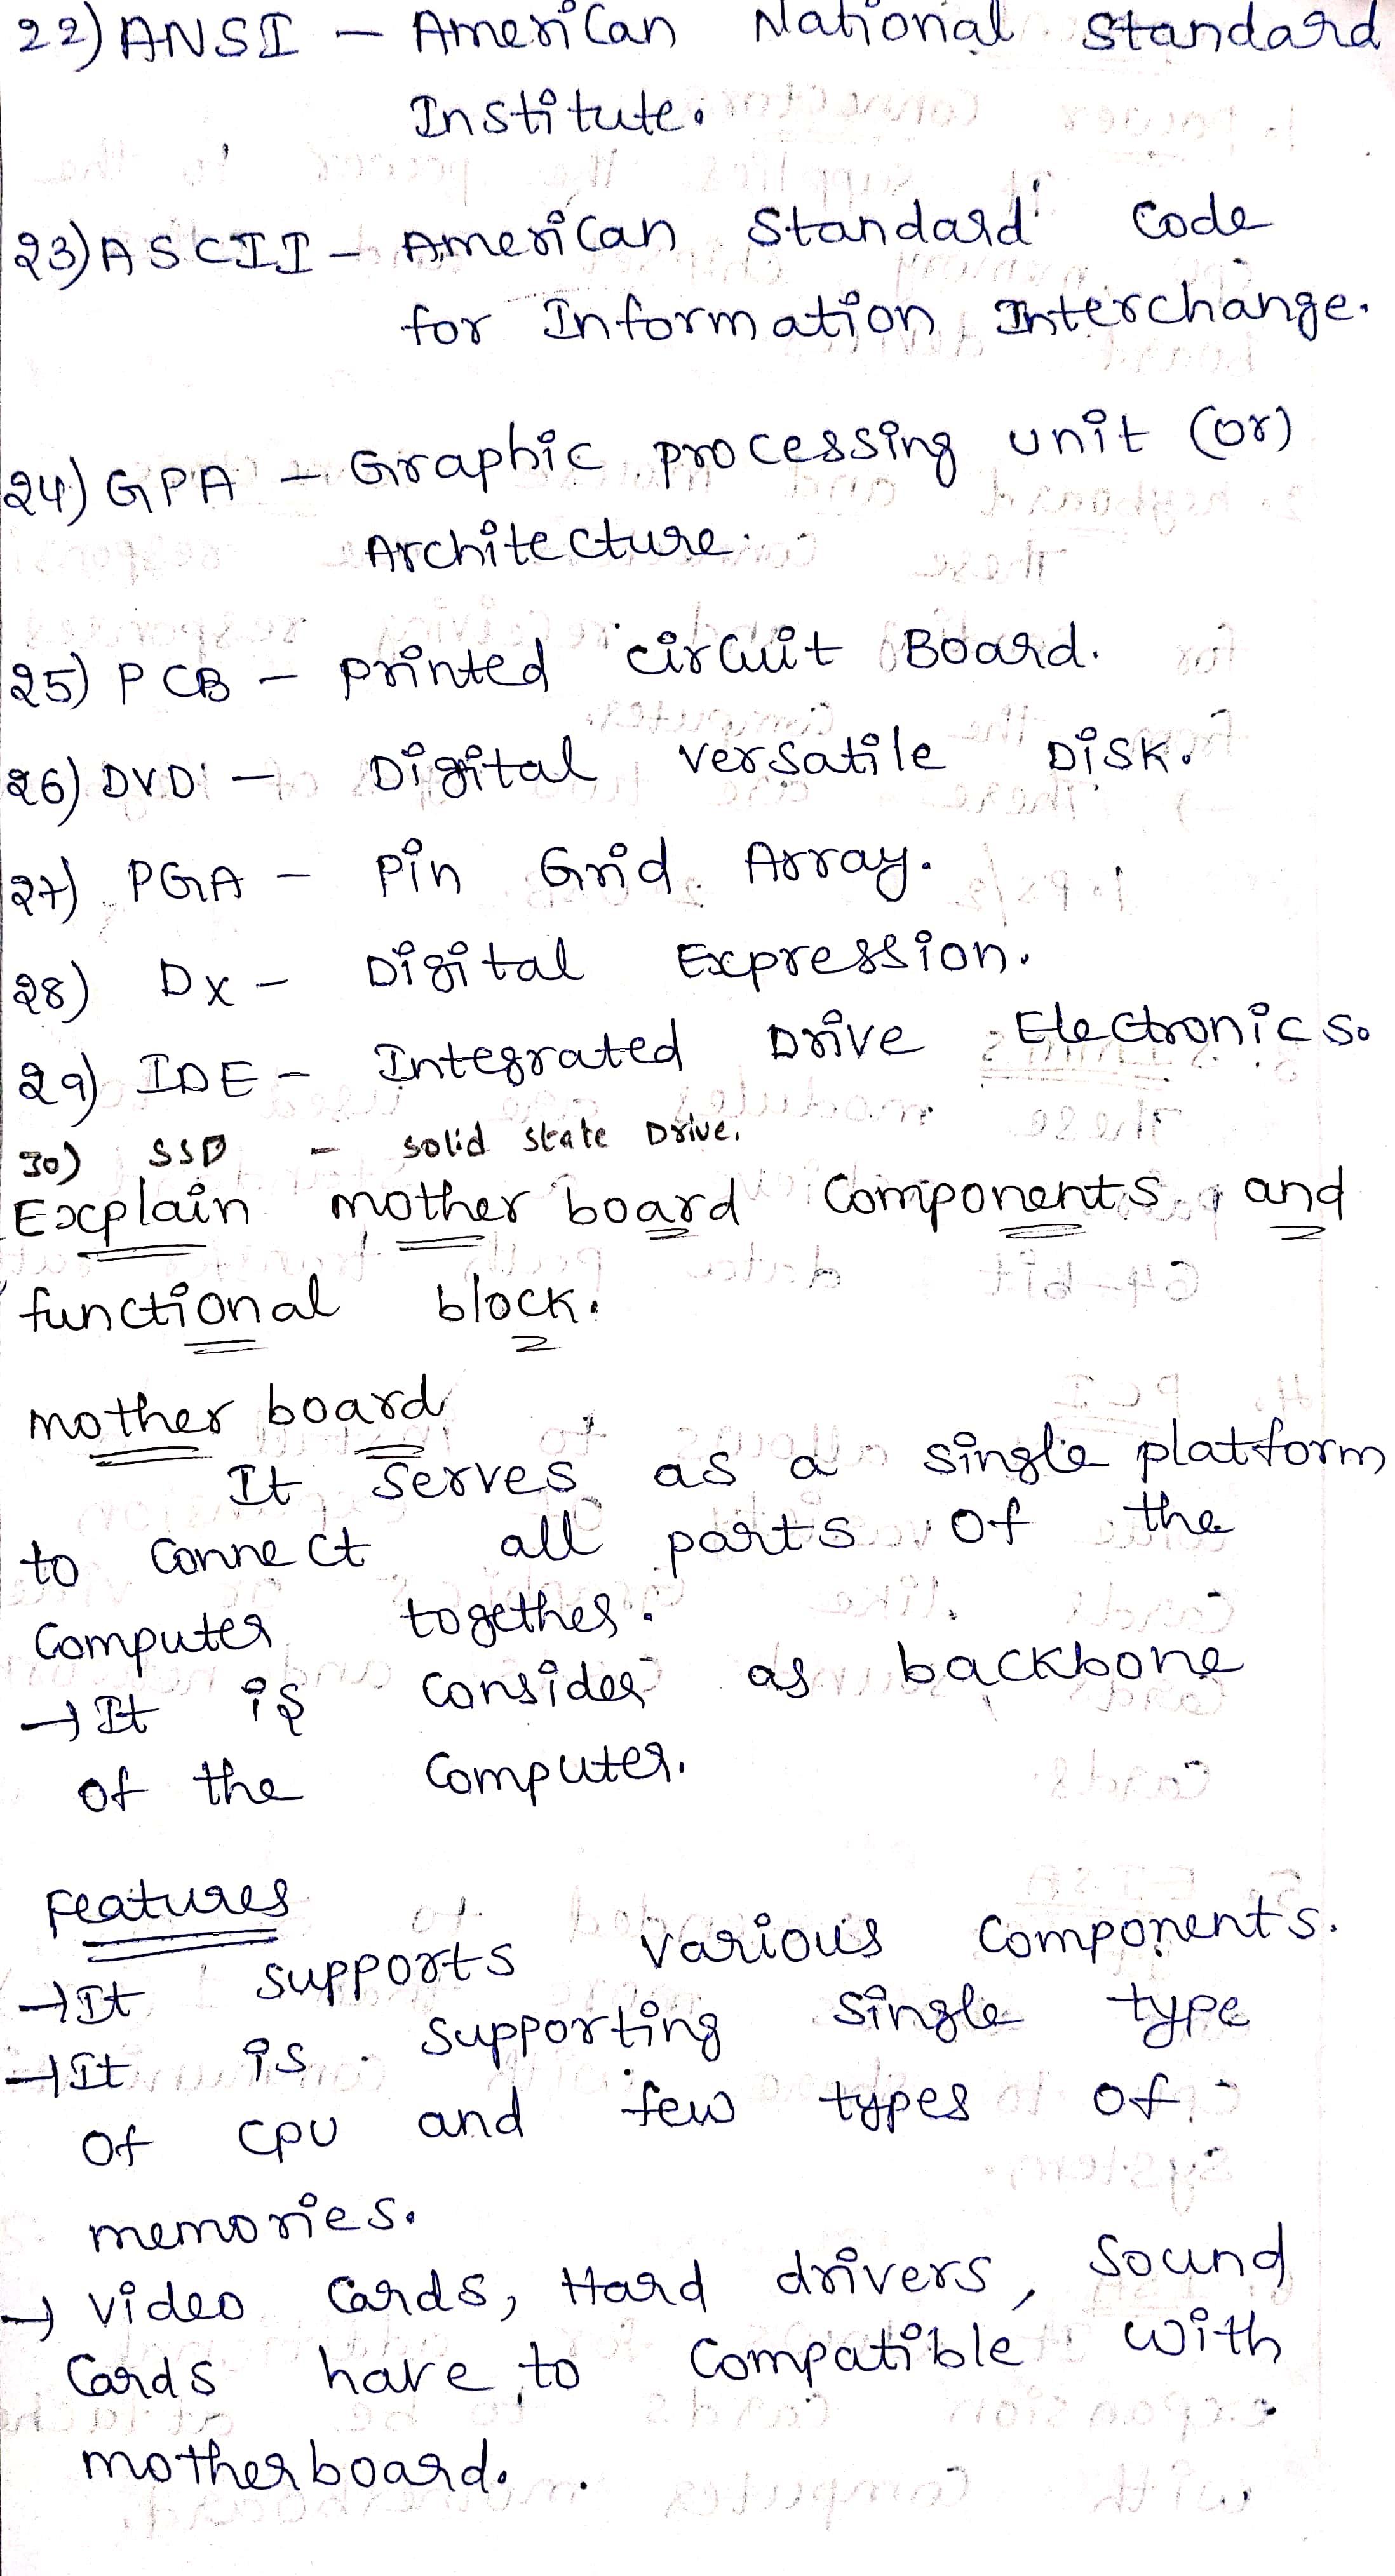 22) ANSI - American National Standard
Institute.
23) ASCII - American Standard Code
for Information Interchange.
24) GPA - Graphic processing unit (or)
Architecture.
25) PCB - printed circuit Board.
26) DVD - Digital versatile Disk.
27) PGA - Pin Grid Array.
28) Dx - Digital Expression.
29) IDE - Integrated Drive Electronics.
30) SSD - Solid State Drive.
Explain mother board Components and
functional block.
mother board
It serves as a single platform
to connect all parts of the
Computer together.
→ It is consider as backbone
of the Computer.
Features
→ It supports various components.
→ It is supporting single type
of CPU and few types of
memories.
→ video Cards, Hard drivers, Sound
Cards have to Compatible with
motherboard.